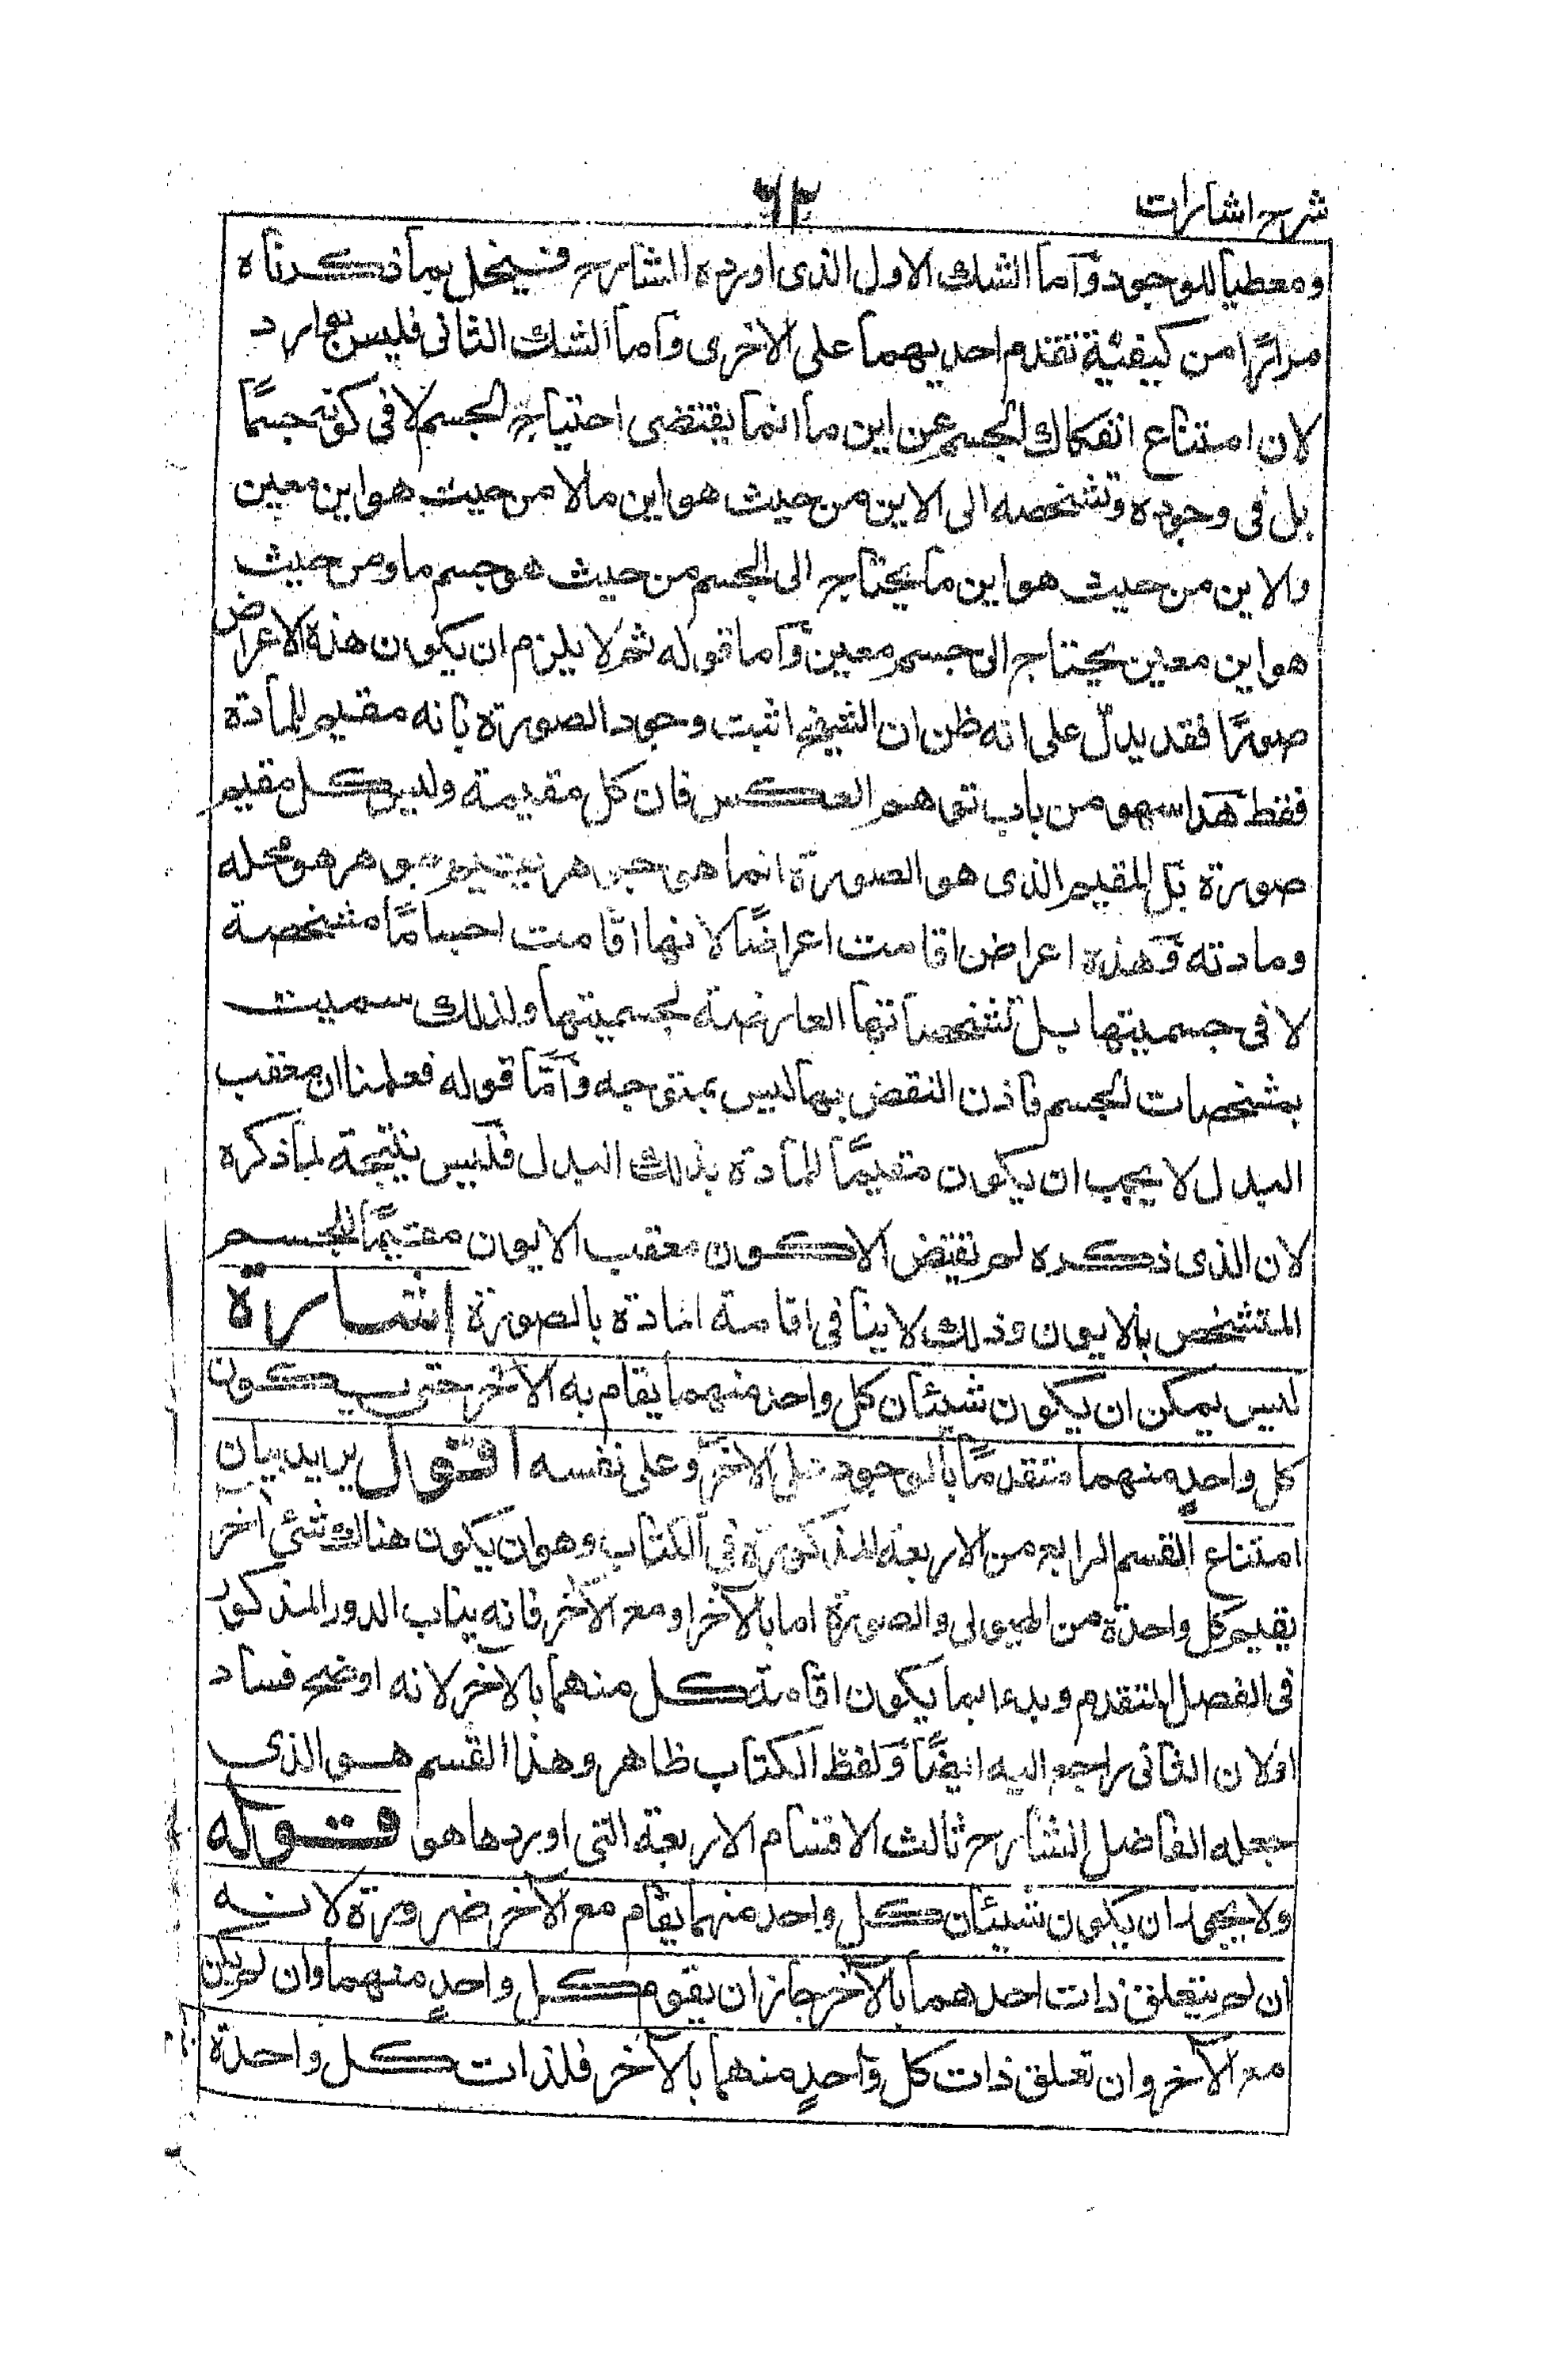 شرح اشارات
٦٢
ومعطيا للوجود وآما الشك الاول الذى اورده الشارح فينحل بما ذكرناه
مرارًا من كيفية تقدم احديهما على الاخرى وآما الشك الثانى فليس بوارد
لان امتناع انفكاك الجسم عن اين ما انما يقتضى احتياج الجسم لا فى كونه جسمًا
بل فى وجوده وتشخصه الى الاين من حيث هو اين ما لا من حيث هو اين معين
والاين من حيث هو اين ما يحتاج الى الجسم من حيث هو جسم ما ومن حيث
هو اين معين يحتاج الى جسم معين وآما قوله ثم لا يلزم ان يكون هذه الاعراض
صورًا فقد يدل على انه ظن ان الشيخ اثبت وجود الصورة بانه مقيم للمادة
فقط هذا سهو من باب توهم العكس فان كل مقيمة وليس كل مقيم
صورة بل المقيم الذى هو الصورة انما هى جوهر يقيم جوهر هو محله
ومادته وهذه اعراض اقامت اعراضًا لانها اقامت اجسامًا مشخصة
لا فى جسميتها بل تشخصاتها العارضة لجسميتها ولذلك سميت
بمشخصات الجسم فاذن النقض بها ليس بمتوجه وآمّا قوله فعلمنا ان معقب
البدل لا يجب ان يكون مقيمًا للمادة بذلك البدل فليس نتيجة لما ذكره
لان الذى ذكره لم يقتض الا كون معقب الايون مقيمًا للجسم
المتشخص بالايون وذلك لا ينافى اقامة المادة بالصورة اشارة
ليس يمكن ان يكون شيئان كل واحد منهما يقام به الآخر حتى يكون
كل واحدٍ منهما متقدمًا بالوجود على الاخر وعلى نفسه اقول يريد بيان
امتناع القسم الرابع من الاربعة المذكورة فى الكتاب وهو ان يكون هناك شئ آخر
يقيم كل واحدة من الهيولى والصورة اما بالآخر او مع الآخر فانه يناسب الدور المذكور
فى الفصل المتقدم وبدء بما يكون اقامة كل منهما بالآخر لانه اوضح فساد
اولان الثانى راجع اليه ايضًا ولفظ الكتاب ظاهر وهذا القسم هو الذى
جعله الفاضل الشارح ثالث الاقسام الاربعة التى اوردها هو قوله
ولا يجوز ان يكون شيئان كل واحد منهما يقام مع الآخر ضرورة لانه
ان لم يتعلق ذات احدهما بالآخر جاز ان يقوم كل واحدٍ منهما وان لم يكن
مع الآخر وان تعلق ذات كل واحدٍ منهما بالآخر فلذات كل واحدة